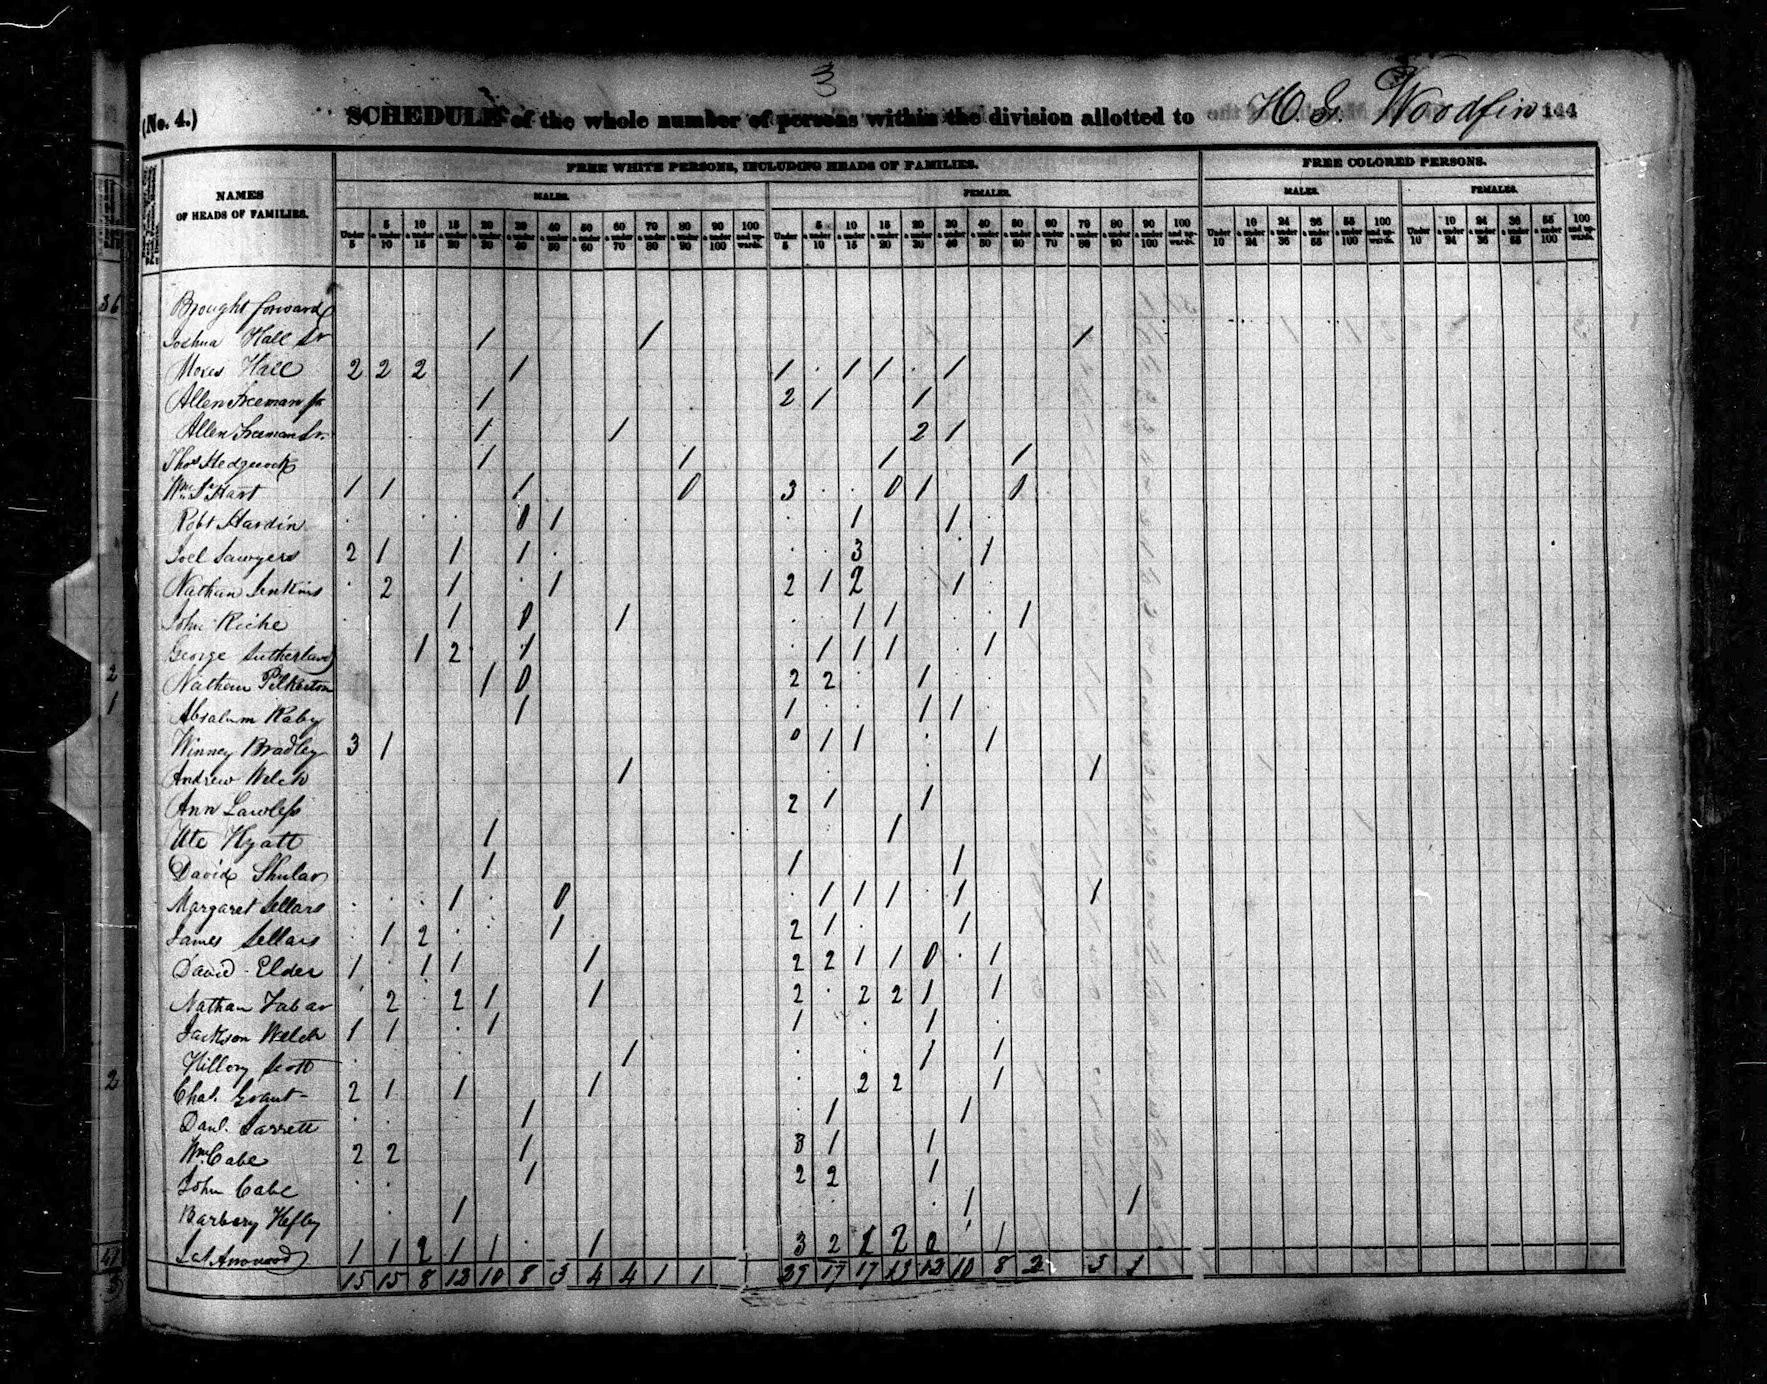 3
(No. 4.) SCHEDULE of the whole number of persons within the division allotted to H. G. Woodfin 144
NAMES OF HEADS OF FAMILIES.
FREE WHITE PERSONS, INCLUDING HEADS OF FAMILIES.
FREE COLORED PERSONS.
MALES. FEMALES. MALES. FEMALES.
Under 5 5 & under 10 10 & under 15 15 & under 20 20 & under 30 30 & under 40 40 & under 50 50 & under 60 60 & under 70 70 & under 80 80 & under 90 90 & under 100 100 and upwards. Under 5 5 & under 10 10 & under 15 15 & under 20 20 & under 30 30 & under 40 40 & under 50 50 & under 60 60 & under 70 70 & under 80 80 & under 90 90 & under 100 100 and upwards. Under 10 10 & under 24 24 & under 36 36 & under 55 55 & under 100 100 and upwards. Under 10 10 & under 24 24 & under 36 36 & under 55 55 & under 100 100 and upwards.
36 Brought forward
Joshua Hall Sr 1 1 1
Moses Hall 2 2 2 1 1 1 1 1
Allen Freeman Jr 1 2 1 1
Allen Freeman Sr. 1 1 2 1
Thos Hedgecock 1 1 1 1
Wm. S. Hart 1 1 1 0 3 0 1 0
Robt Hardin 0 1 1 1
Joel Sawyers 2 1 1 1 3 1
Nathan Jenkins 2 1 1 2 1 2 1
John Riche 1 0 1 1 1 1
George Sutherland 1 2 1 1 1 1 1
2 Nathan Pilkerton 1 0 2 2 1
1 Absalum Raby 1 1 1 1
Winney Bradley 3 1 0 1 1 1
Andrew Welch 1 1
Ann Lawless 2 1 1
Ute Hyatt 1 1
David Shular 1 1 1
Margaret Sellars 1 0 1 1 1 1 1
James Sellars 1 2 1 2 1 1
David Elder 1 1 1 1 2 2 1 1 0 1
Nathan Tabar 2 2 1 1 2 2 2 1 1
Jackson Welch 1 1 1 1 1
Hillory Scott 1 1 1
2 Chas. Grant 2 1 1 1 2 2 1
Danl. Jarrett 1 1 1
Wm. Cabe 2 2 1 3 1 1
John Cabe 1 2 2 1
Barbery Hefley 1 1 1
1 1 2 1 1 1 3 2 1 2 0 1
15 15 8 12 10 8 3 4 4 1 1 29 17 17 13 12 10 8 2 3 1